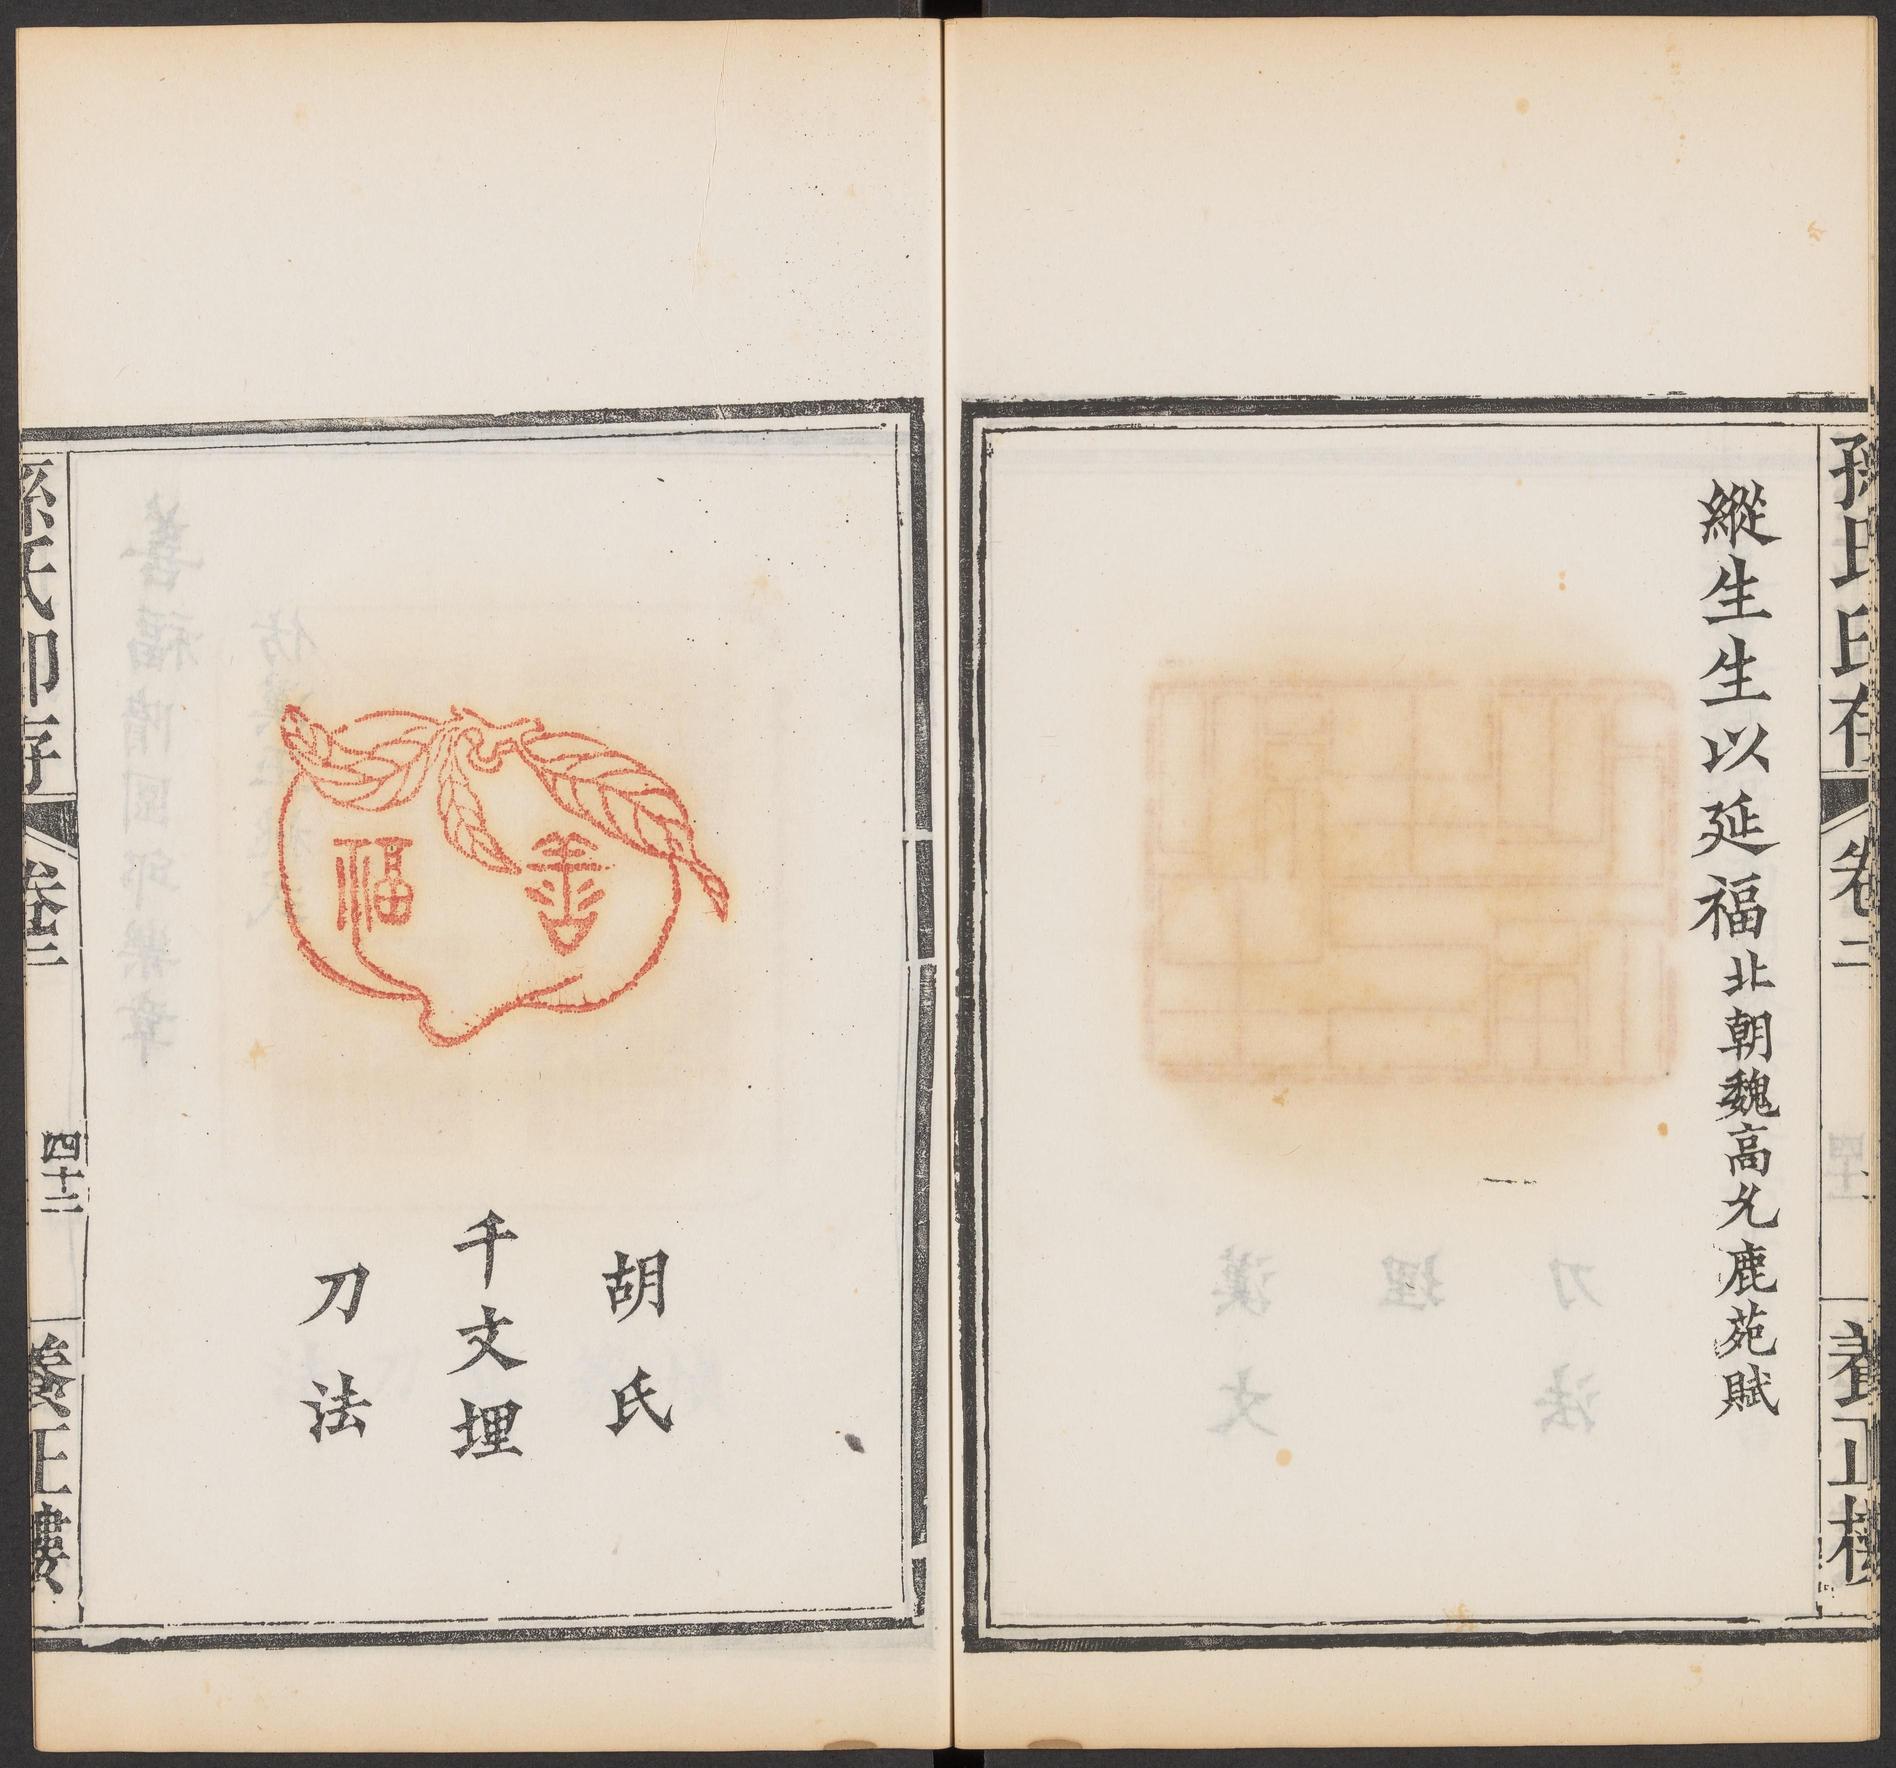 孫氏印存
卷二
養正樓
縱生生以延福北朝魏高允鹿苑賦
善福
胡氏
千文埋
刀法
孫氏印存
卷二
四十二
養正樓